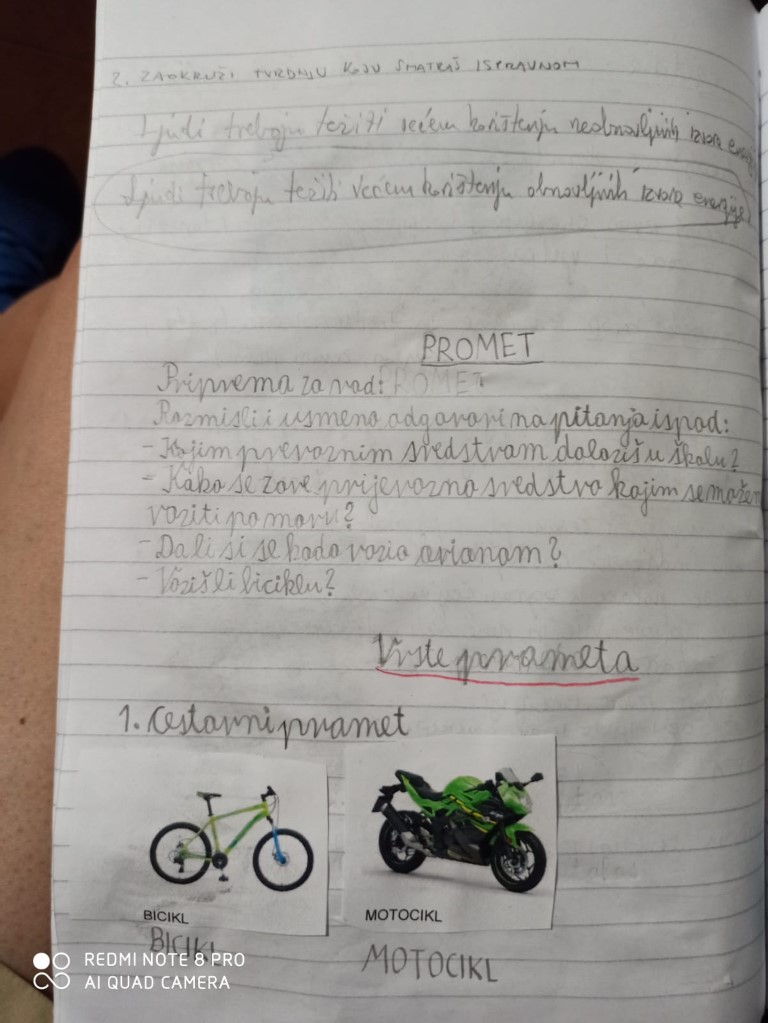 2. ZAOKRUŽI TVRDNJU KOJU SMATRAŠ ISPRAVNOM
Ljudi trebaju težiti većem korištenju neobnovljivih izvora energije
Ljudi trebaju težiti većem korištenju obnovljivih izvora energije
PROMET
Priprema za rad: PROMET
Razmisli i usmeno odgovori na pitanja ispod:
- Kojim prevoznim sredstvam dolaziš u školu?
- Kako se zove prijevozno sredstvo kojim se možem
voziti po moru?
- Da li si se kada vozio avionom?
- Voziš li biciklu?
Vrste prometa
1. Cestovni promet
BICIKL
MOTOCIKL
BICIKL
MOTOCIKL
REDMI NOTE 8 PRO
AI QUAD CAMERA